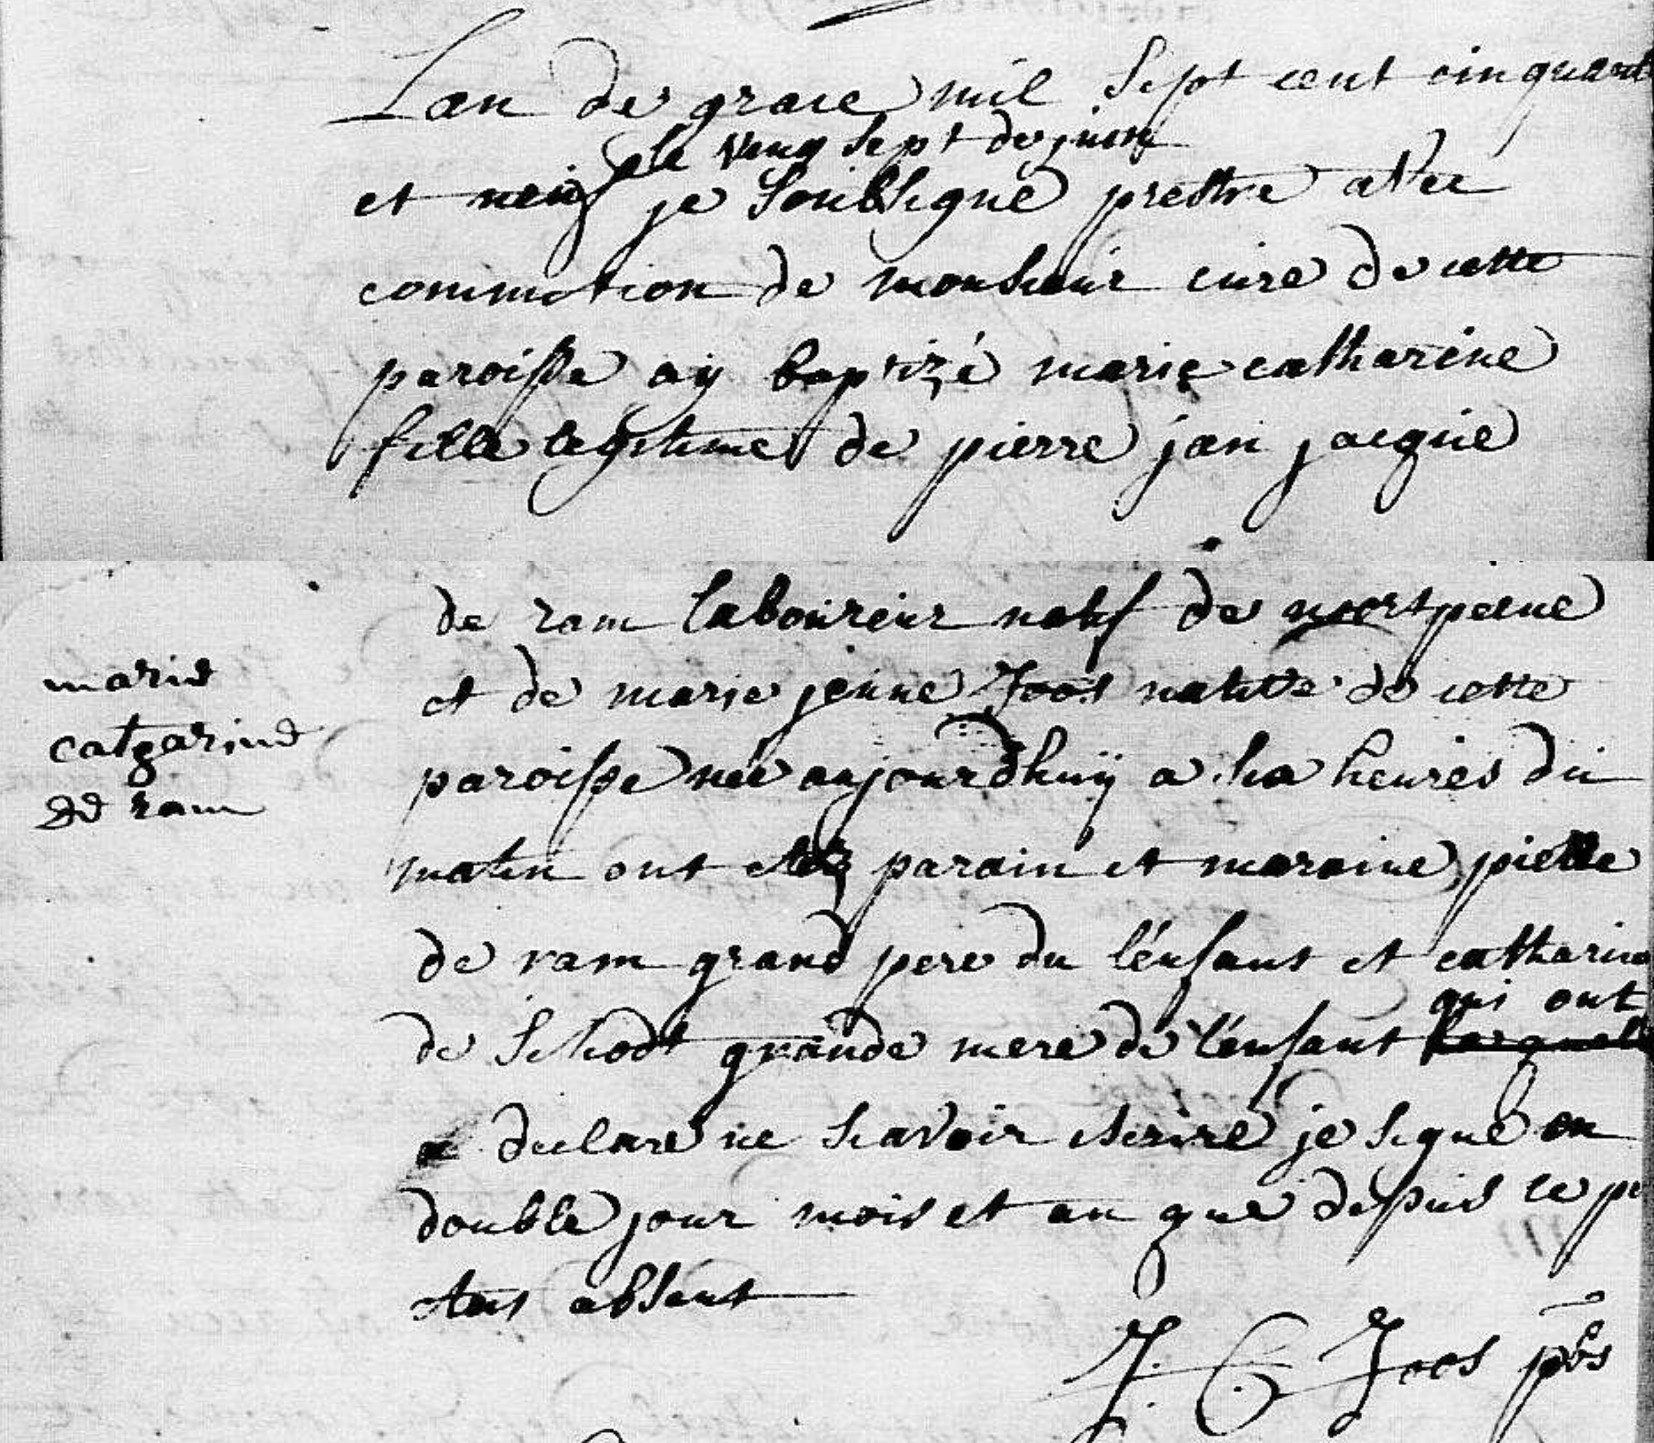 Lan de grace mil sept cent cinquant
le ving sept de juin
et neuf je soubsigne prestre avec
commotion de monsieur cure de cette
paroisse ay baptizé marie catharine
fille legitime de pierre jan jacque
de ram laboureur natif de
et de marie jenne Joos native de cette
paroisse née aujourdhuy a six heures du
matin ont etez parain et maraine pierre
de ram grand pere du l'enfant et catharine
qui ont
de Schodt grande mere de l'enfant
declare ne scavoir escrire je signe en
double jour mois et an que depuis le pe
etant absent
marie
catharine
de ram
J. C. Joos pbs